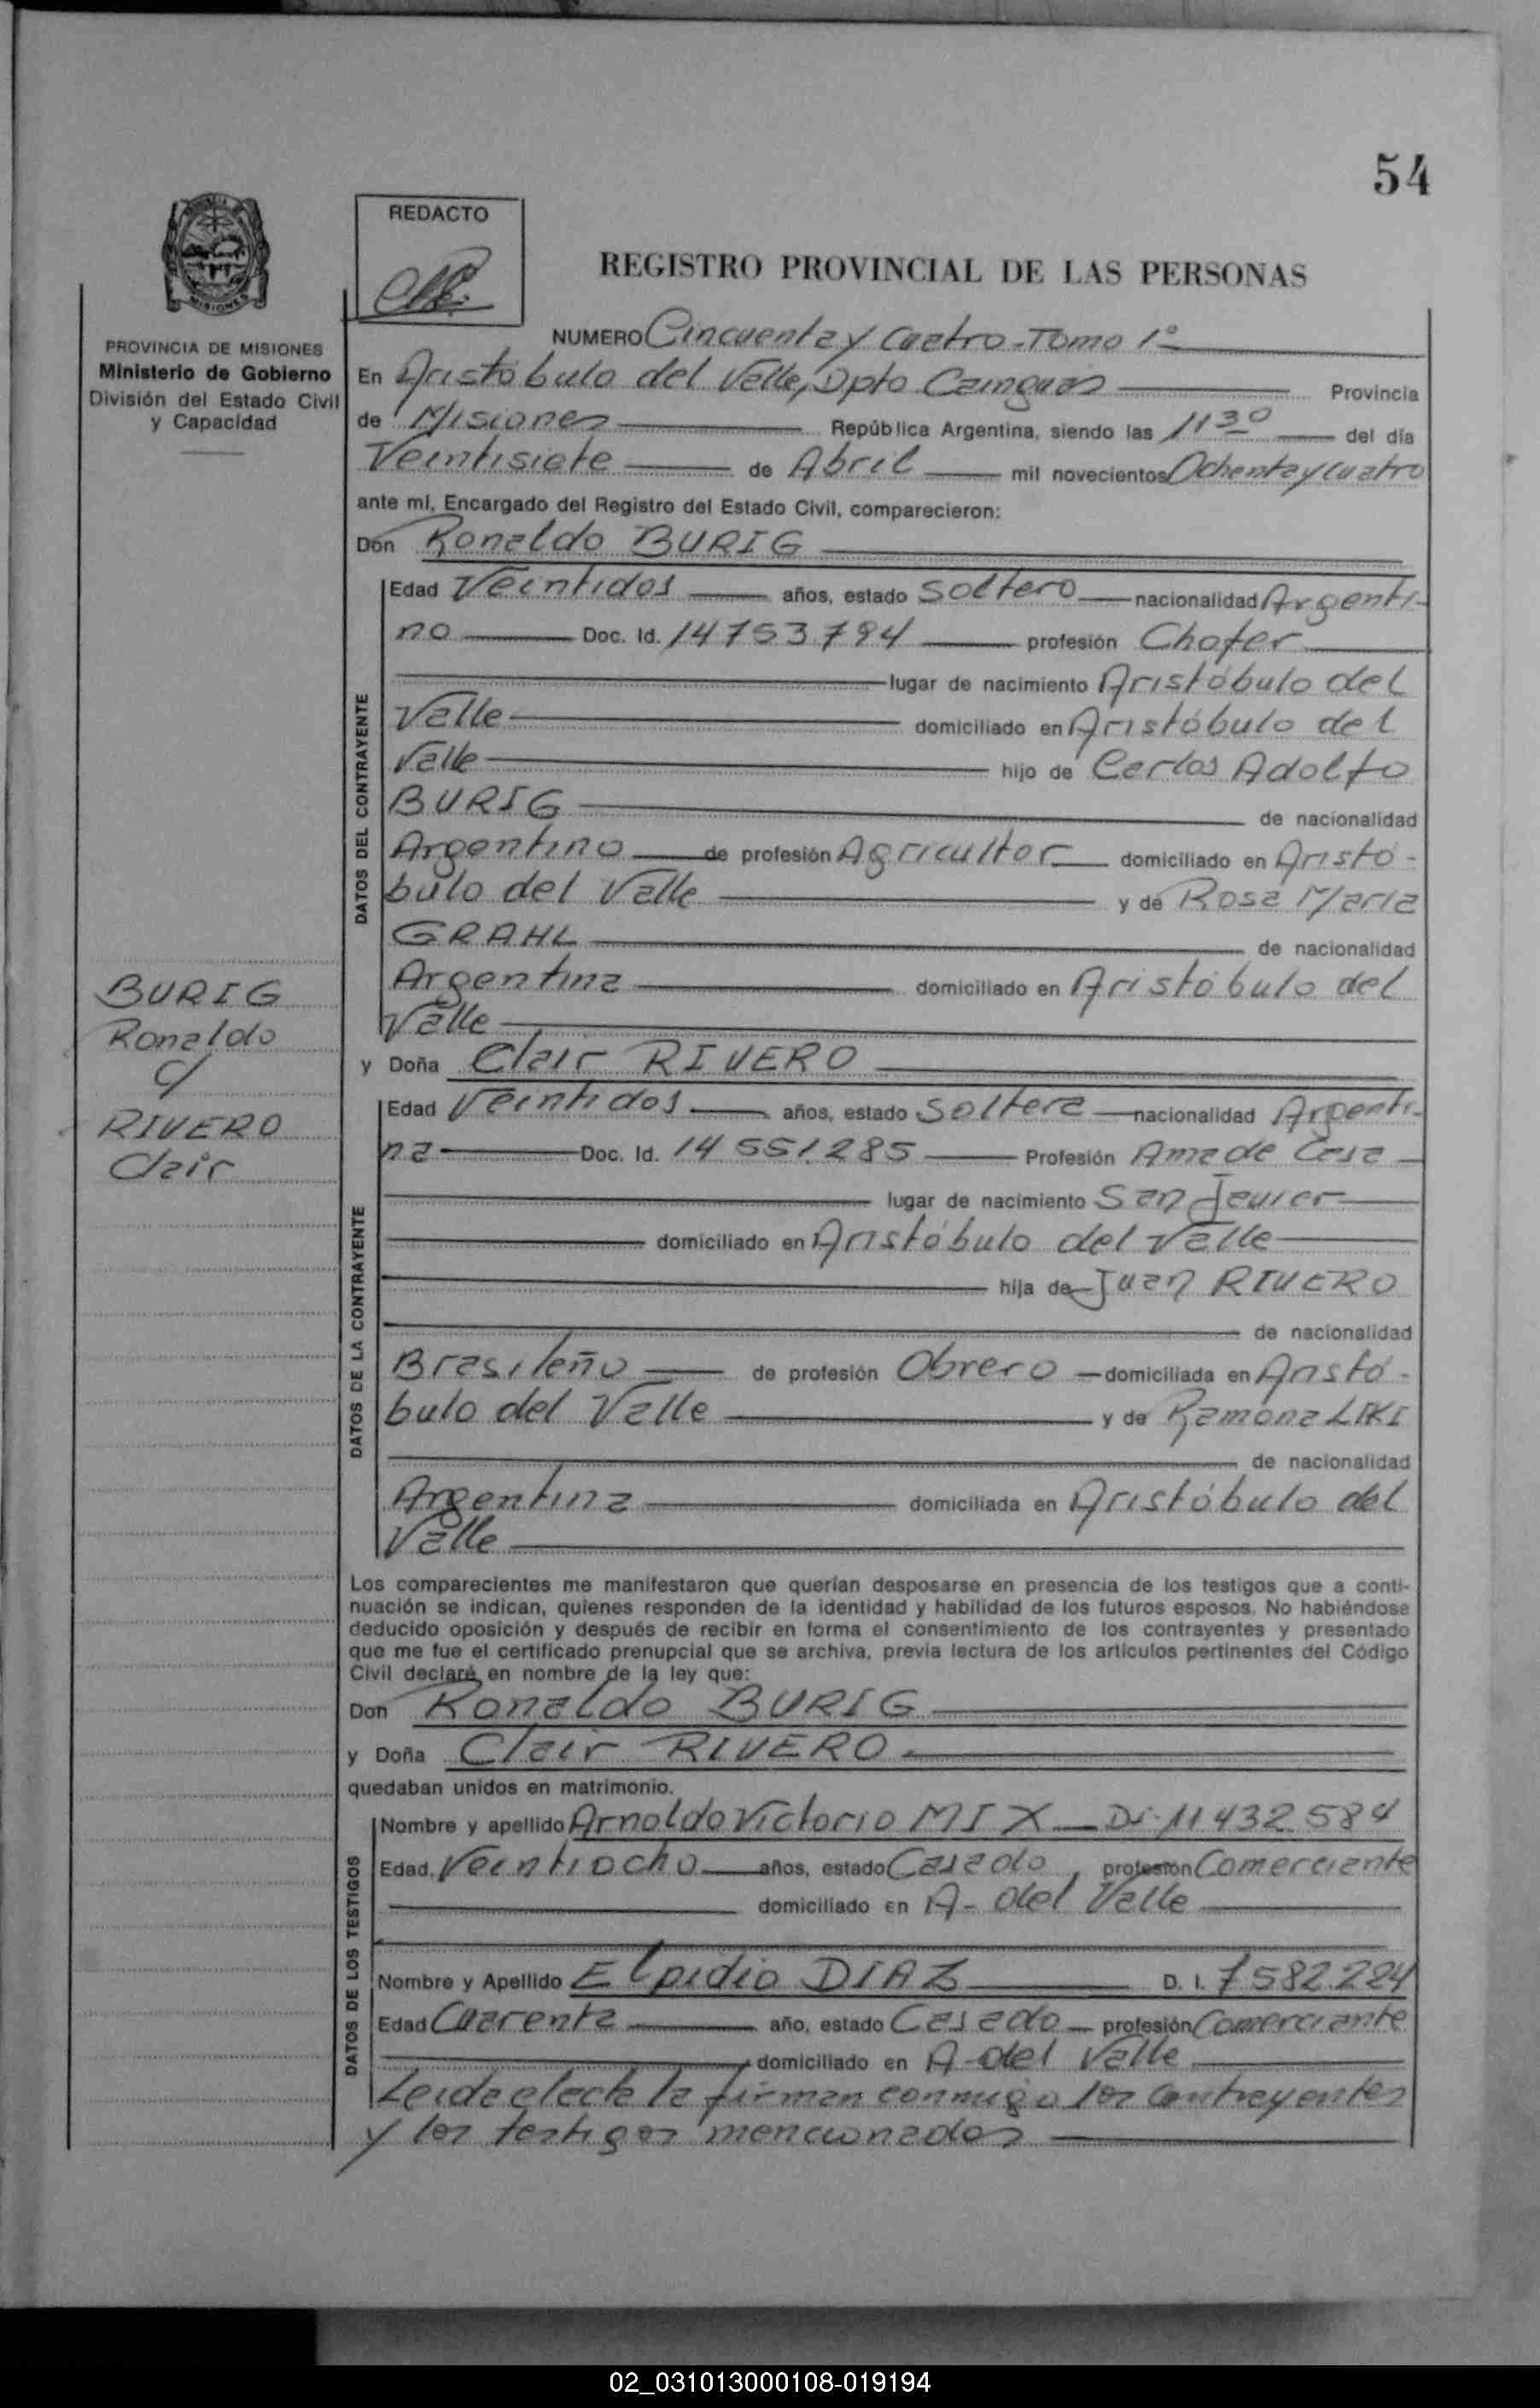 54
REDACTO
REGISTRO PROVINCIAL DE LAS PERSONAS
MISIONES
PROVINCIA DE MISIONES
Ministerio de Gobierno
División del Estado Civil
y Capacidad
NUMERO Cincuenta y Cuatro - Tomo 1º
En Aristóbulo del Valle, Dpto Cainguás Provincia
de Misiones República Argentina, siendo las 11 30 del día
Veintisiete de Abril mil novecientos Ochenta y cuatro
ante mi, Encargado del Registro del Estado Civil, comparecieron:
Don Ronaldo BURIG
DATOS DEL CONTRAYENTE
Edad Veintidos años, estado Soltero nacionalidad Argenti-
no Doc. Id. 14753794 profesión Chofer
lugar de nacimiento Aristóbulo del
Valle domiciliado en Aristóbulo del
Valle hijo de Carlos Adolfo
BURIG de nacionalidad
Argentino de profesión Agricultor domiciliado en Aristó-
bulo del Valle y de Rosa Maria
GRAHL de nacionalidad
Argentina domiciliado en Aristóbulo del
Valle
BURIG
Ronaldo
c/
RIVERO
Clair
y Doña Clair RIVERO
DATOS DE LA CONTRAYENTE
Edad Veintidos años, estado Soltera nacionalidad Argenti-
na Doc. Id. 14 551.285 Profesión Ama de Casa
lugar de nacimiento San Javier
domiciliado en Aristóbulo del Valle
hija de Juan RIVERO
de nacionalidad
Brasileño de profesión Obrero domiciliada en Aristó-
bulo del Valle y de Ramona LIKI
de nacionalidad
Argentina domiciliada en Aristóbulo del
Valle
Los comparecientes me manifestaron que querían desposarse en presencia de los testigos que a conti-
nuación se indican, quienes responden de la identidad y habilidad de los futuros esposos. No habiéndose
deducido oposición y después de recibir en forma el consentimiento de los contrayentes y presentado
que me fue el certificado prenupcial que se archiva, previa lectura de los artículos pertinentes del Código
Civil declaré en nombre de la ley que:
Don Ronaldo BURIG
y Doña Clair RIVERO
quedaban unidos en matrimonio.
DATOS DE LOS TESTIGOS
Nombre y apellido Arnoldo Victorio MIX Di- 11 432.584
Edad, Veintiocho años, estado Casado, profesión Comerciante
domiciliado en A- del Valle
Nombre y Apellido Elpidio DIAZ D. I. 7582.224
Edad Cuarenta año, estado Casado profesión Comerciante
domiciliado en A- del Valle
Leida el acta la firman conmigo los contrayentes
y los testigos mencionados
02_031013000108-019194